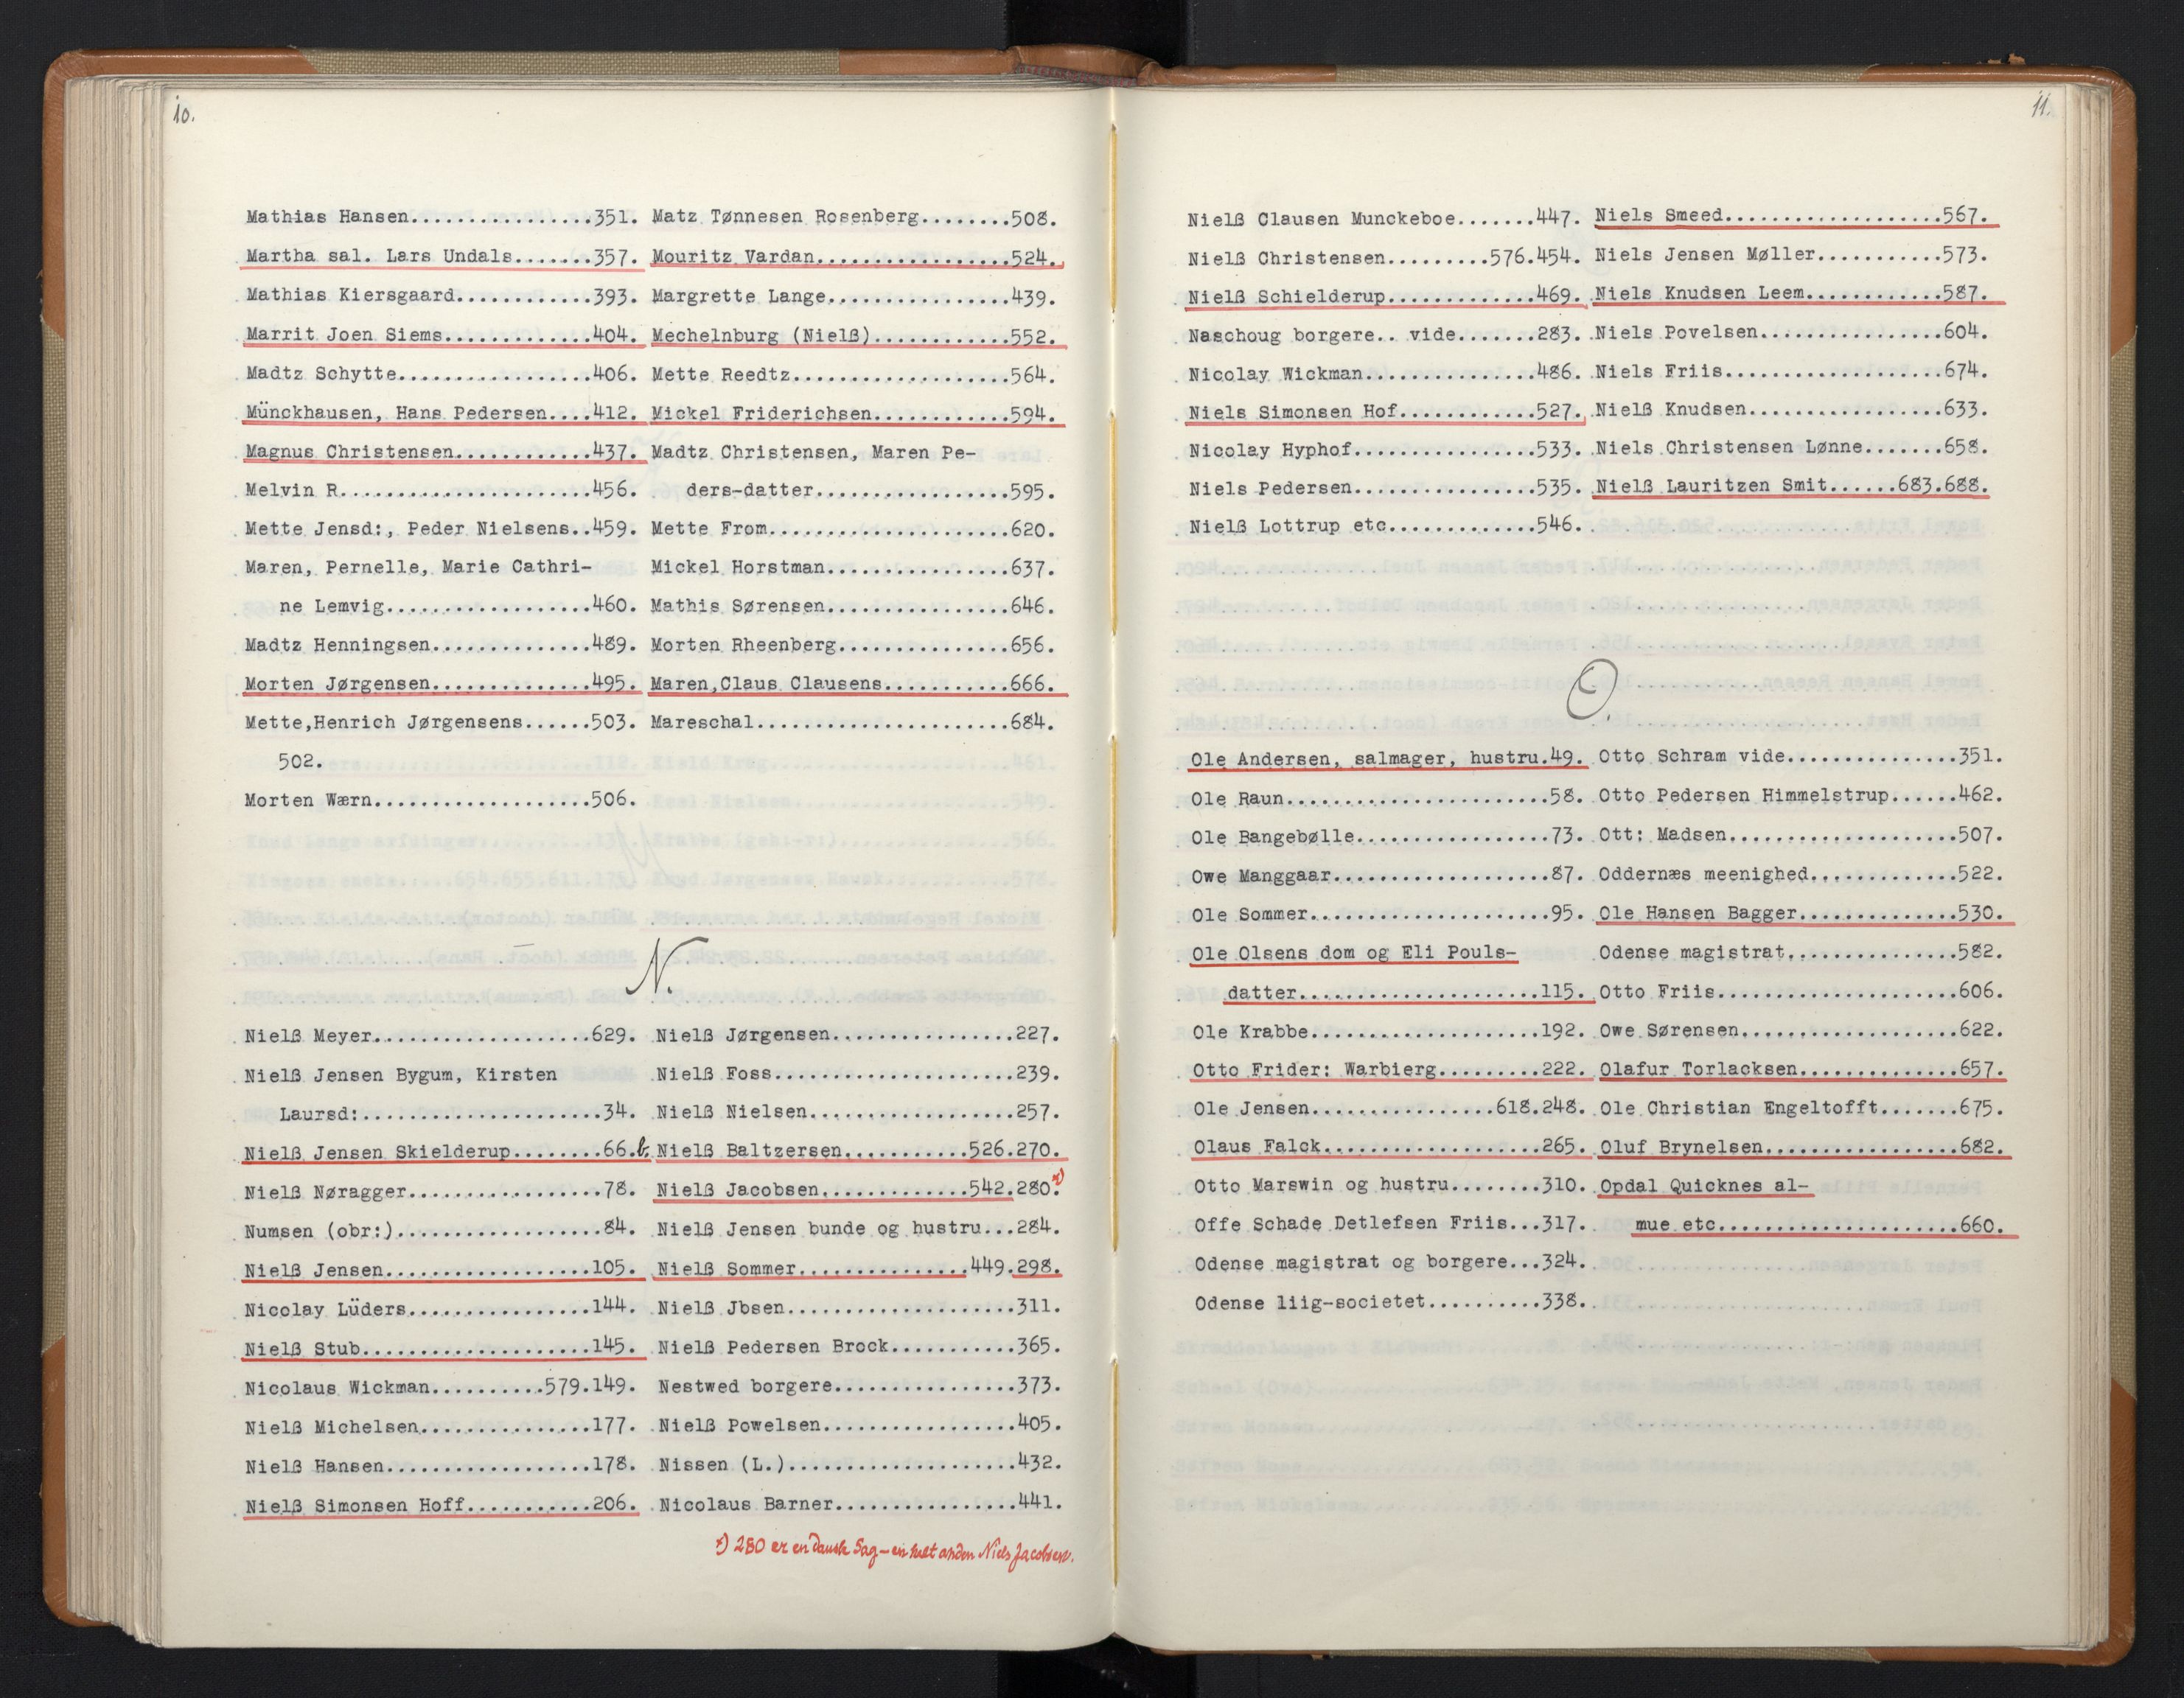 10.
Mathias Hansen................351.
Martha sal. Lars Undals.......357.
Mathias Kiersgaard............393.
Marrit Joen Siems.............404.
Madtz Schytte.................406.
Münckhausen, Hans Pedersen....412.
Magnus Christensen............437.
Melvin R......................456.
Mette Jensd:, Peder Nielsens..459.
Maren, Pernelle, Marie Cathri-
ne Lemvig..................460.
Madtz Henningsen..............489.
Morten Jørgensen..............495.
Mette,Henrich Jørgensens......503.
502.
Morten Wærn...................506.
Matz Tønnesen Rosenberg........508.
Mouritz Vardan.................524.
Margrette Lange................439.
Mechelnburg (Nielß)............552.
Mette Reedtz...................564.
Mickel Friderichsen............594.
Madtz Christensen, Maren Pe-
ders-datter.................595.
Mette From.....................620.
Mickel Horstman................637.
Mathis Sørensen................646.
Morten Rheenberg...............656.
Maren,Claus Clausens...........666.
Mareschal......................684.
N.
Nielß Meyer...................629.
Nielß Jensen Bygum, Kirsten
Laursd:.....................34.
Nielß Jensen Skielderup........66.b.
Nielß Nøragger.................78.
Numsen (obr:)..................84.
Nielß Jensen..................105.
Nicolay Lüders................144.
Nielß Stub....................145.
Nicolaus Wickman..........579.149.
Nielß Michelsen...............177.
Nielß Hansen..................178.
Nielß Simonsen Hoff...........206.
Nielß Jørgensen................227.
Nielß Foss.....................239.
Nielß Nielsen..................257.
Nielß Baltzersen...........526.270.
Nielß Jacobsen.............542.280.x)
Nielß Jensen bunde og hustru...284.
Nielß Sommer...............449.298.
Nielß Jbsen....................311.
Nielß Pedersen Brock...........365.
Nestwed borgere................373.
Nielß Powelsen.................405.
Nissen (L.)....................432.
Nicolaus Barner................441.
x) 280 er en dansk Sag – en helt anden Niels Jacobsen.
11.
Nielß Clausen Munckeboe.......447.
Nielß Christensen.........576.454.
Nielß Schielderup.............469.
Naschoug borgere.. vide.......283.
Nicolay Wickman...............486.
Niels Simonsen Hof............527.
Nicolay Hyphof................533.
Niels Pedersen................535.
Nielß Lottrup etc.............546.
Niels Smeed...................567.
Niels Jensen Møller...........573.
Niels Knudsen Leem............587.
Niels Povelsen................604.
Niels Friis...................674.
Nielß Knudsen.................633.
Niels Christensen Lønne.......658.
Nielß Lauritzen Smit......683.688.
O.
Ole Andersen, salmager, hustru.49.
Ole Raun.......................58.
Ole Bangebølle.................73.
Owe Manggaar...................87.
Ole Sommer.....................95.
Ole Olsens dom og Eli Pouls-
datter.....................115.
Ole Krabbe....................192.
Otto Frider: Warbierg.........222.
Ole Jensen................618.248.
Olaus Falck...................265.
Otto Marswin og hustru........310.
Offe Schade Detlefsen Friis...317.
Odense magistrat og borgere...324.
Odense liig-societet..........338.
Otto Schram vide...............351.
Otto Pedersen Himmelstrup......462.
Ott: Madsen....................507.
Oddernæs meenighed.............522.
Ole Hansen Bagger..............530.
Odense magistrat...............582.
Otto Friis.....................606.
Owe Sørensen...................622.
Olafur Torlacksen..............657.
Ole Christian Engeltofft.......675.
Oluf Brynelsen.................682.
Opdal Quicknes al-
mue etc.....................660.